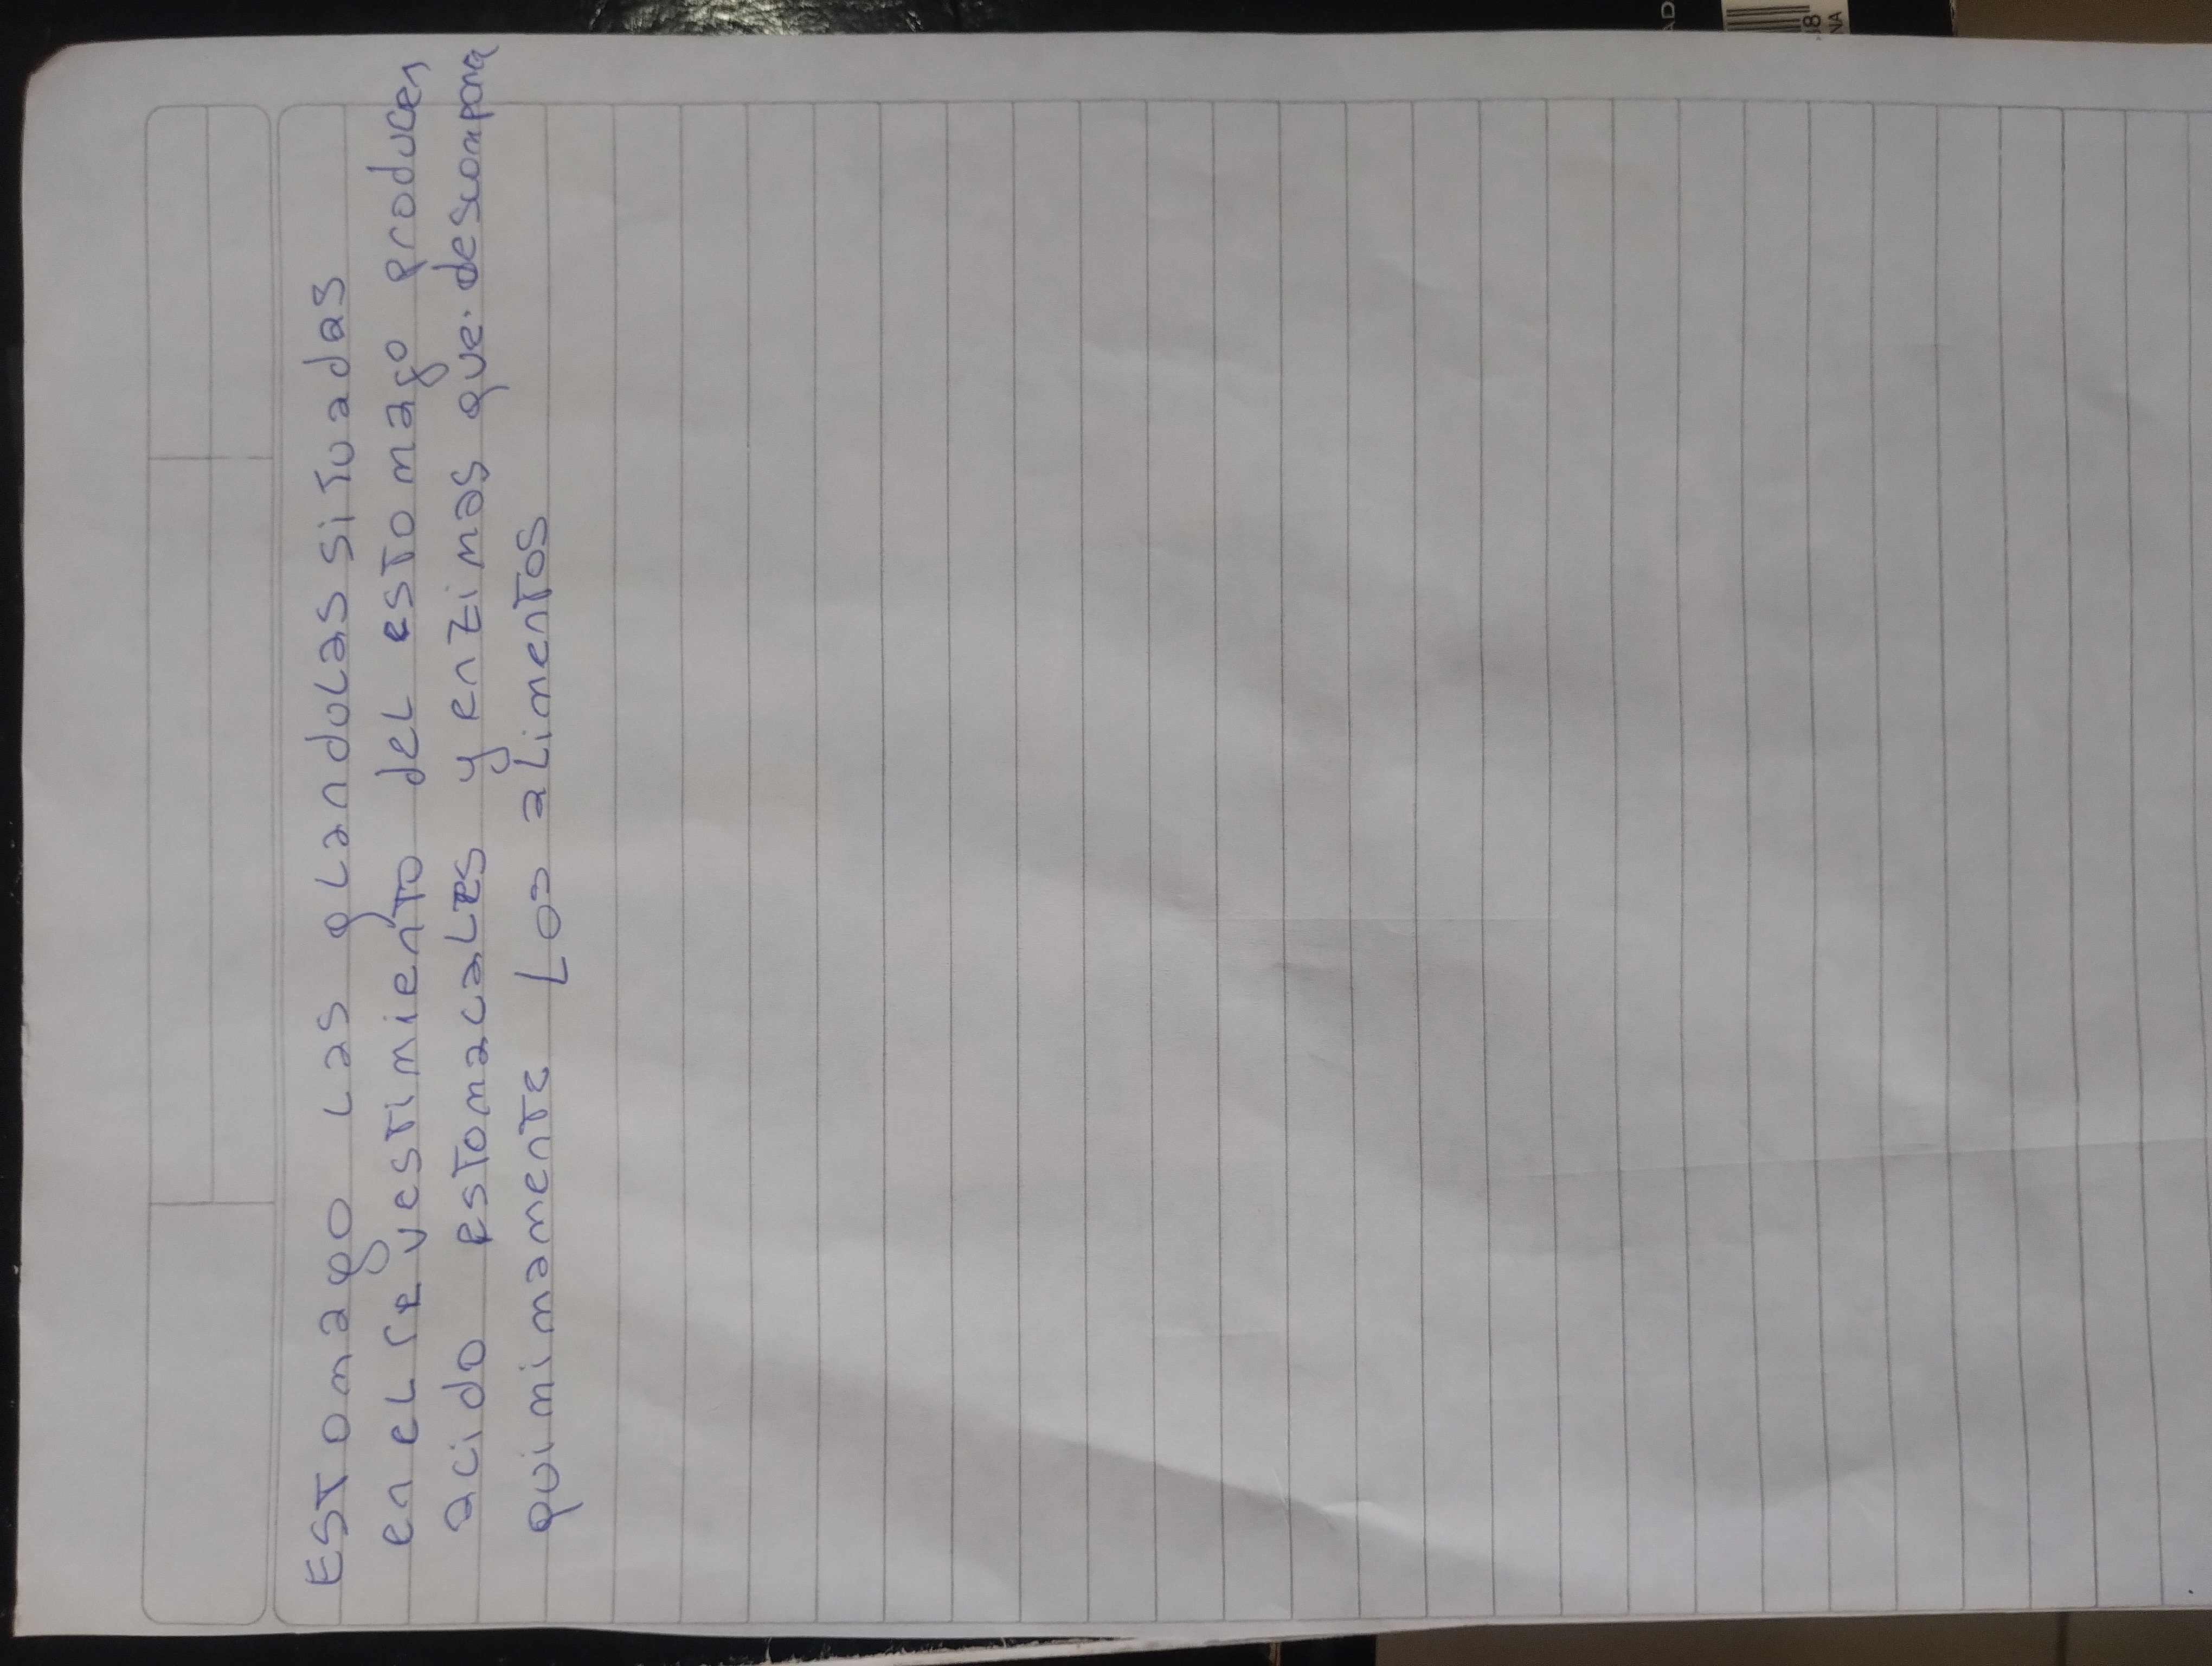 Estomago Las glandulas situadas
en el revestimiento del estomago producen
acido estomacales y enzimas que. descompona
quimimamente Los alimentos
AD
NA